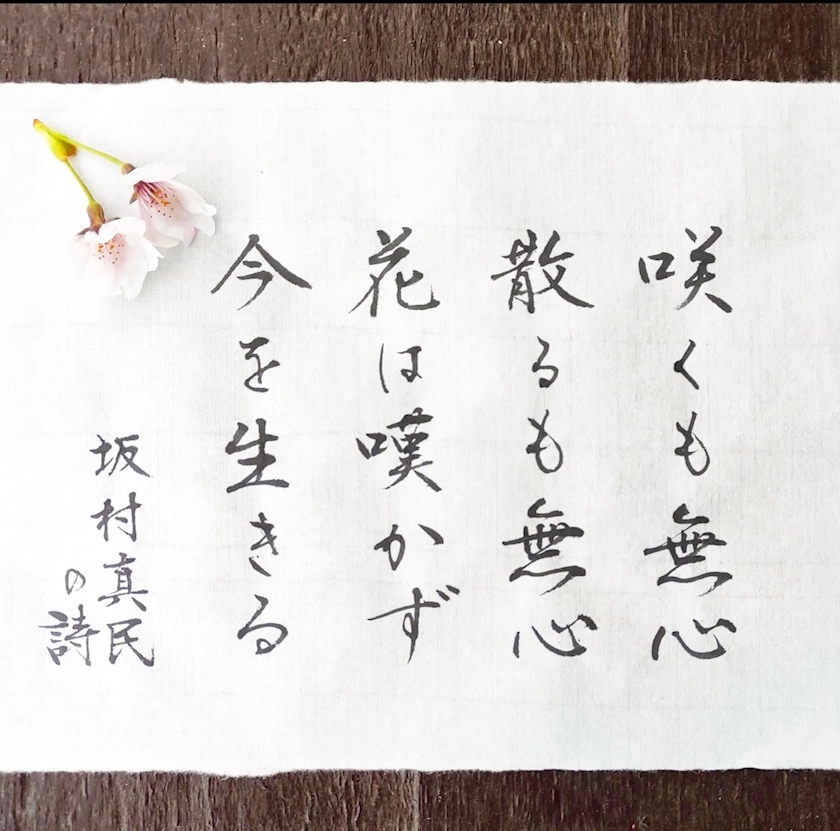 咲くも無心
散るも無心
花は嘆かず
今を生きる
坂村真民
の詩